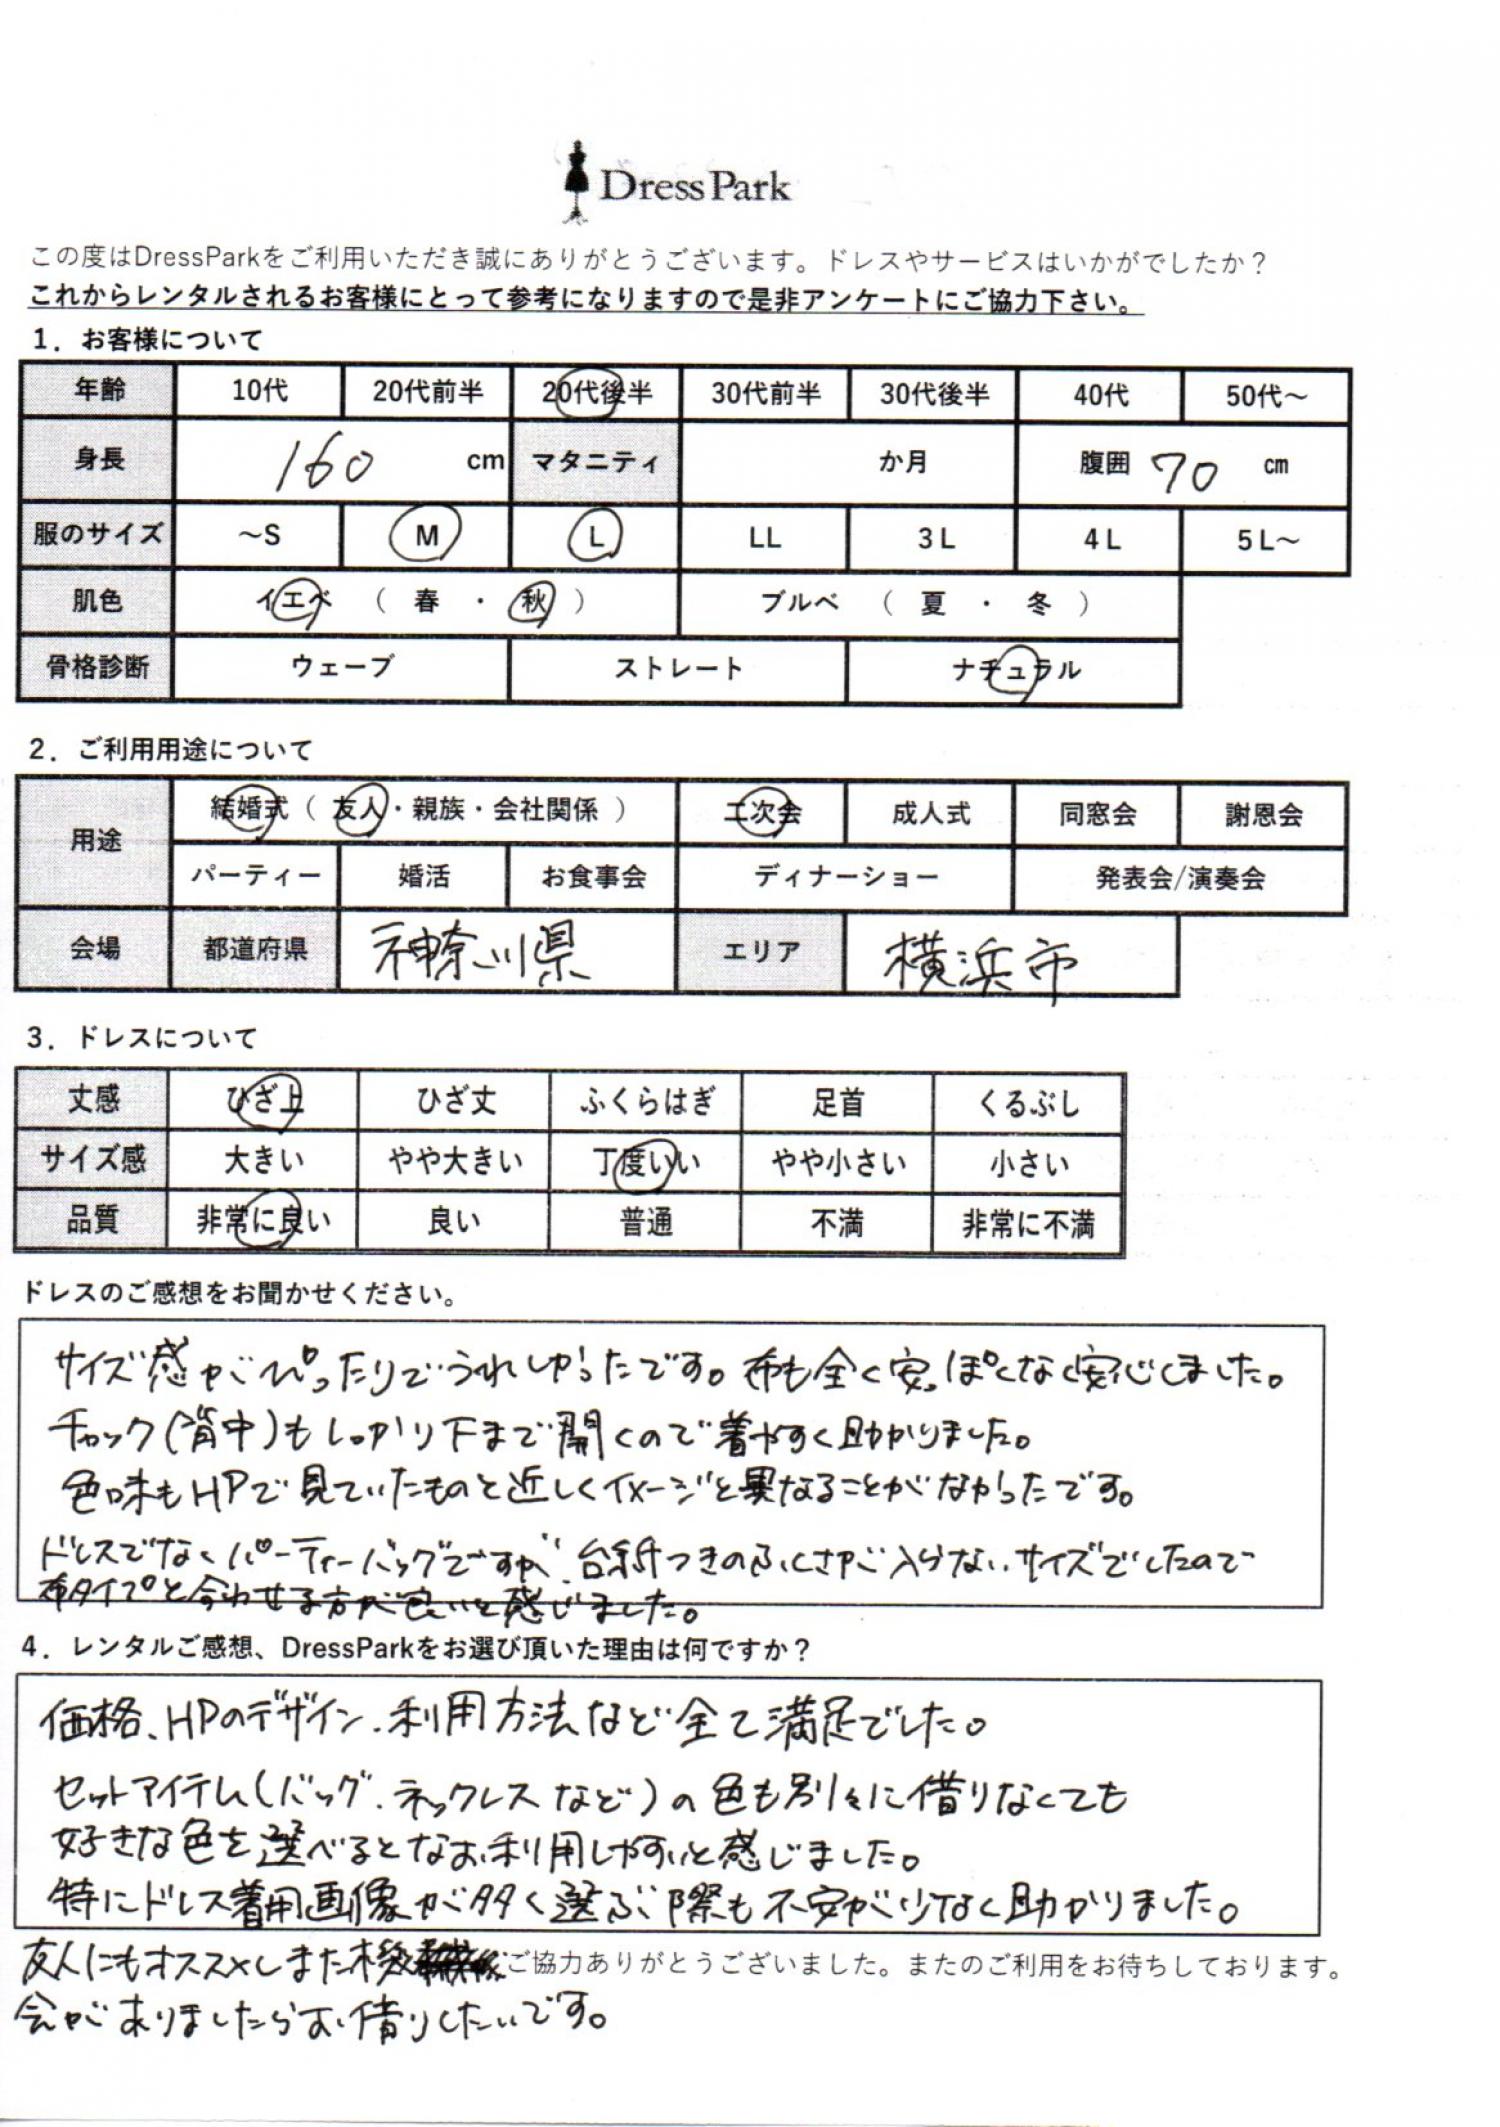 DressPark
この度はDressParkをご利用いただき誠にありがとうございます。ドレスやサービスはいかがでしたか？
これからレンタルされるお客様にとって参考になりますので是非アンケートにご協力下さい。
1．お客様について
年齢 10代 20代前半 20代後半 30代前半 30代後半 40代 50代～
身長 160 cm マタニティ か月 腹囲 70 cm
服のサイズ ～S M L LL 3L 4L 5L～
肌色 イエベ （ 春 ・ 秋 ） ブルベ （ 夏 ・ 冬 ）
骨格診断 ウェーブ ストレート ナチュラル
2．ご利用用途について
用途 結婚式（ 友人・親族・会社関係 ） 二次会 成人式 同窓会 謝恩会
パーティー 婚活 お食事会 ディナーショー 発表会/演奏会
会場 都道府県 神奈川県 エリア 横浜市
3．ドレスについて
丈感 ひざ上 ひざ丈 ふくらはぎ 足首 くるぶし
サイズ感 大きい やや大きい 丁度いい やや小さい 小さい
品質 非常に良い 良い 普通 不満 非常に不満
ドレスのご感想をお聞かせください。
サイズ感がぴったりでうれしかったです。布も全く安っぽくなく安心しました。
チャック(背中)もしっかり下まで開くので着やすく助かりました。
色味もHPで見ていたものと近しくイメージと異なることがなかったです。
ドレスでなくパーティーバッグですが、台紙つきのふくさが入らないサイズでしたので
布タイプと合わせる方が良いと感じました。
4．レンタルご感想、DressParkをお選び頂いた理由は何ですか？
価格、HPのデザイン、利用方法など全て満足でした。
セットアイテム(バッグ、ネックレスなど)の色も別々に借りなくても
好きな色を選べるとなお利用しやすいと感じました。
特にドレス着用画像が多く選ぶ際も不安が少なく助かりました。
友人にもオススメしまた機 ご協力ありがとうございました。またのご利用をお待ちしております。
会がありましたらお借りしたいです。